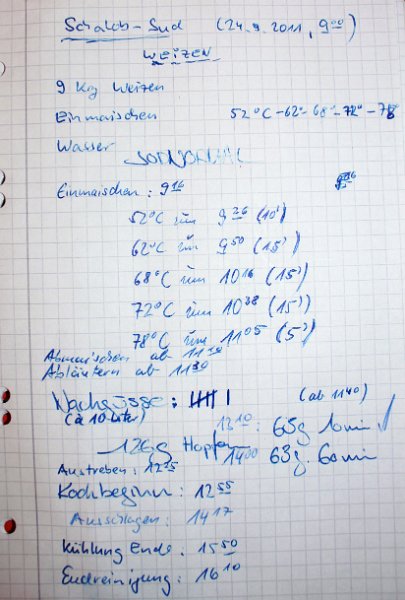 Schalob-Sud (24.9.2011, 9⁰⁰)
WEIZEN
9 Kg Weizen
Einmaischen 52°C-62°-68°-72°-78°
Wasser
Einmaischen: 9¹⁶
52°C um 9²⁶ (10')
62°C um 9⁵⁰ (15')
68°C um 10¹⁶ (15')
72°C um 10³⁸ (15')
78°C um 11⁰⁵ (5')
Abmaischen ab 11¹⁰
Abläutern ab 11³⁰
Nachgüsse: 卌 I (ab 11⁴⁰)
(à 10 Liter) 13¹⁰: 65g 10min
126g Hopfen 14⁰⁰ 63g 60min
Austreben: 12²⁵
Kochbeginn: 12⁵⁵
Ausschlagen: 14¹⁷
Kühlung Ende: 15⁵⁰
Endreinigung: 16¹⁰